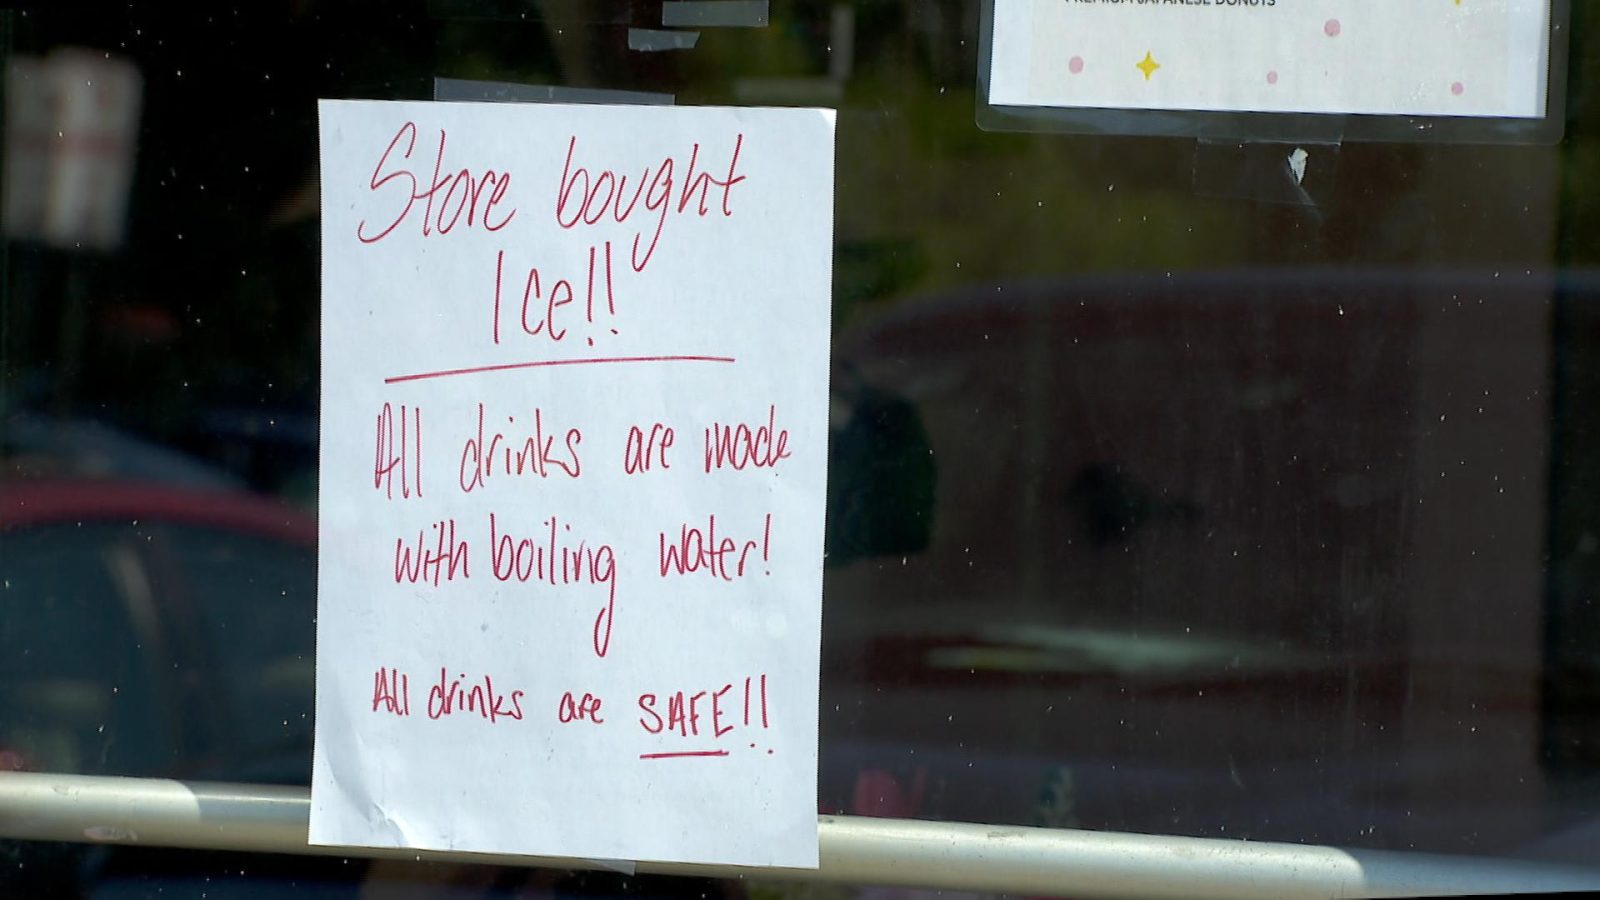 PREMIUM JAPANESE DONUTS
Store bought
Ice!!
All drinks are made
with boiling water!
All drinks are SAFE!!